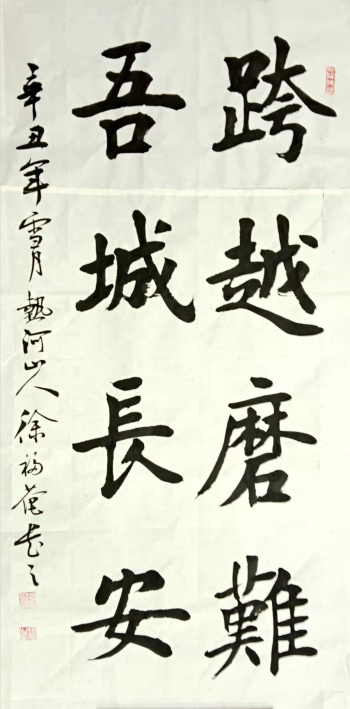 跨越磨難
吾城長安
辛丑年雪月熱河山人徐福庵書之